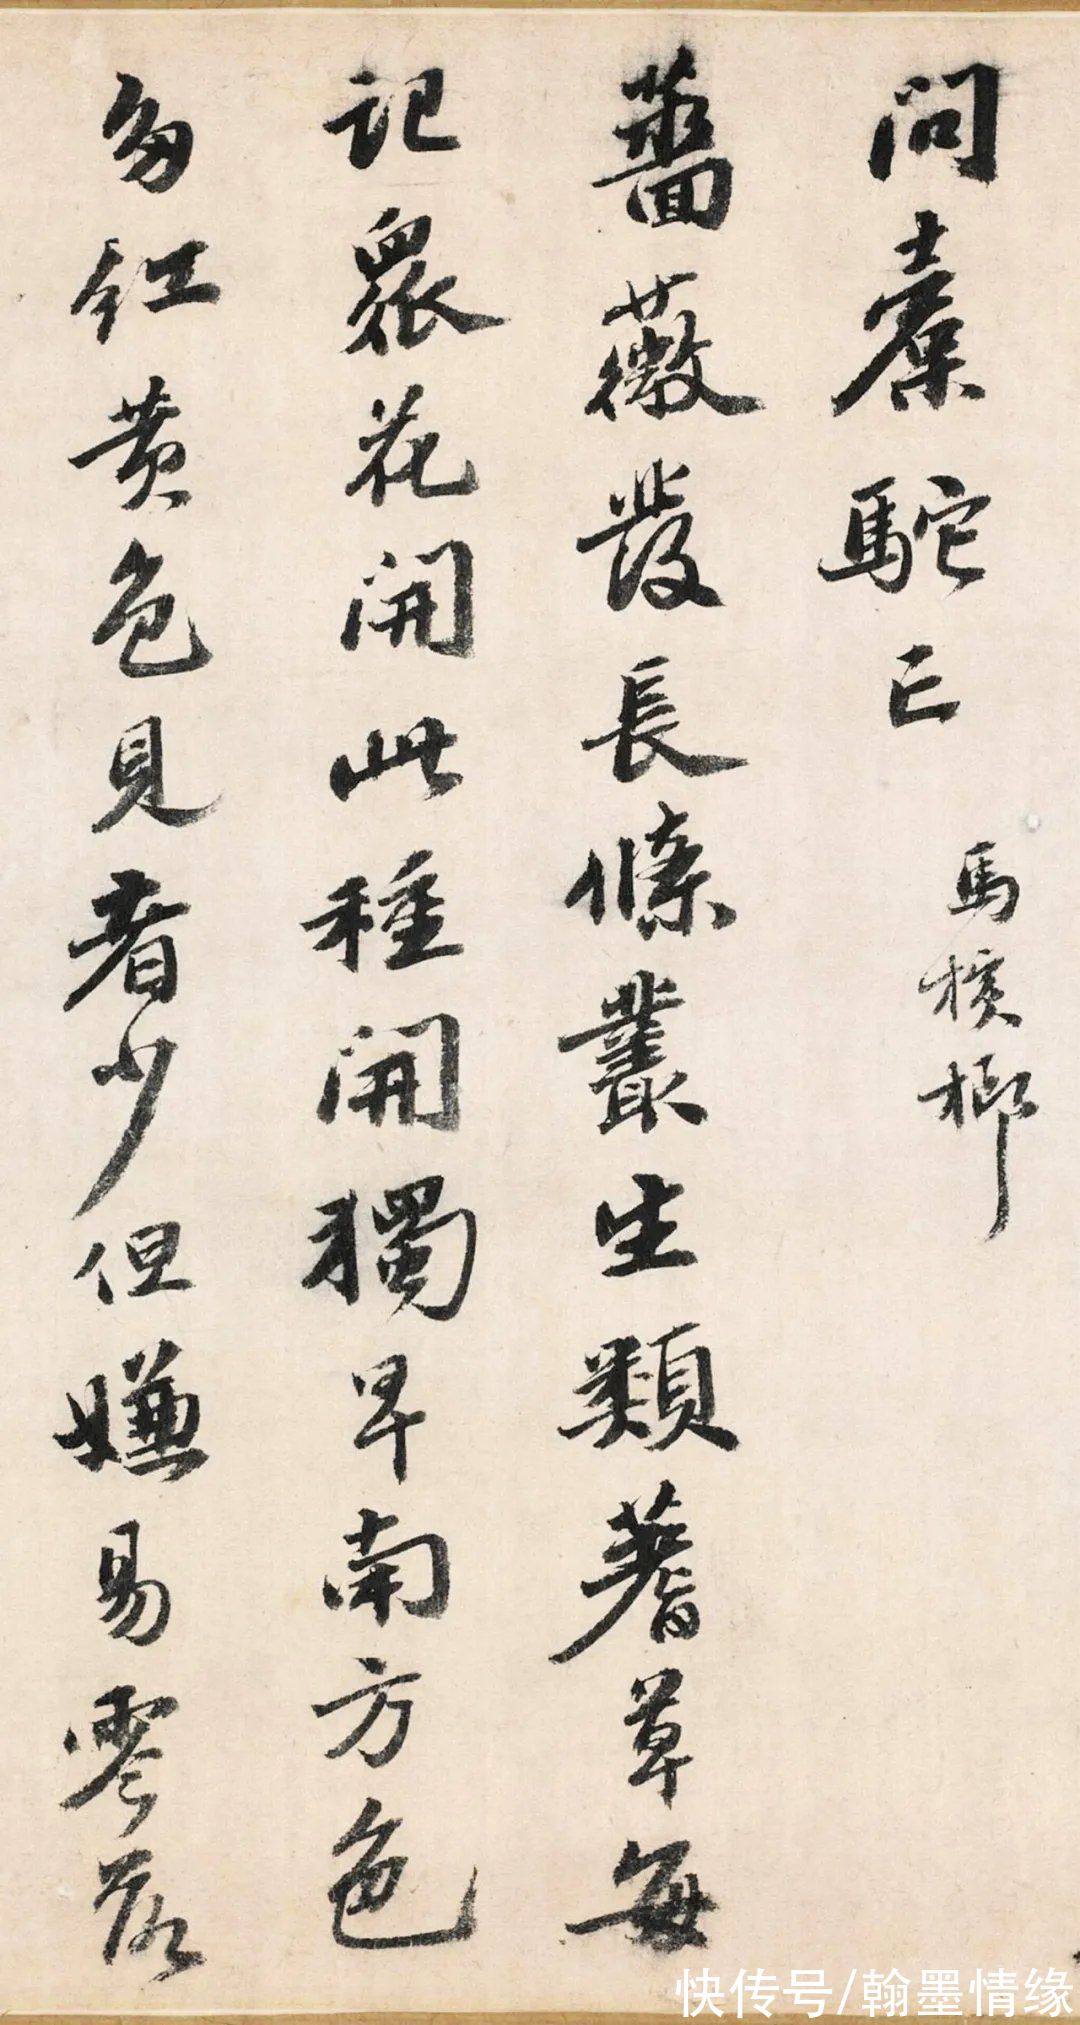 問橐駝已
馬檳榔
薔薇發長條叢生類蓍草每
記眾花開此種開獨早南方色
多紅黃色見者少但嫌易零落
快传号/翰墨情缘